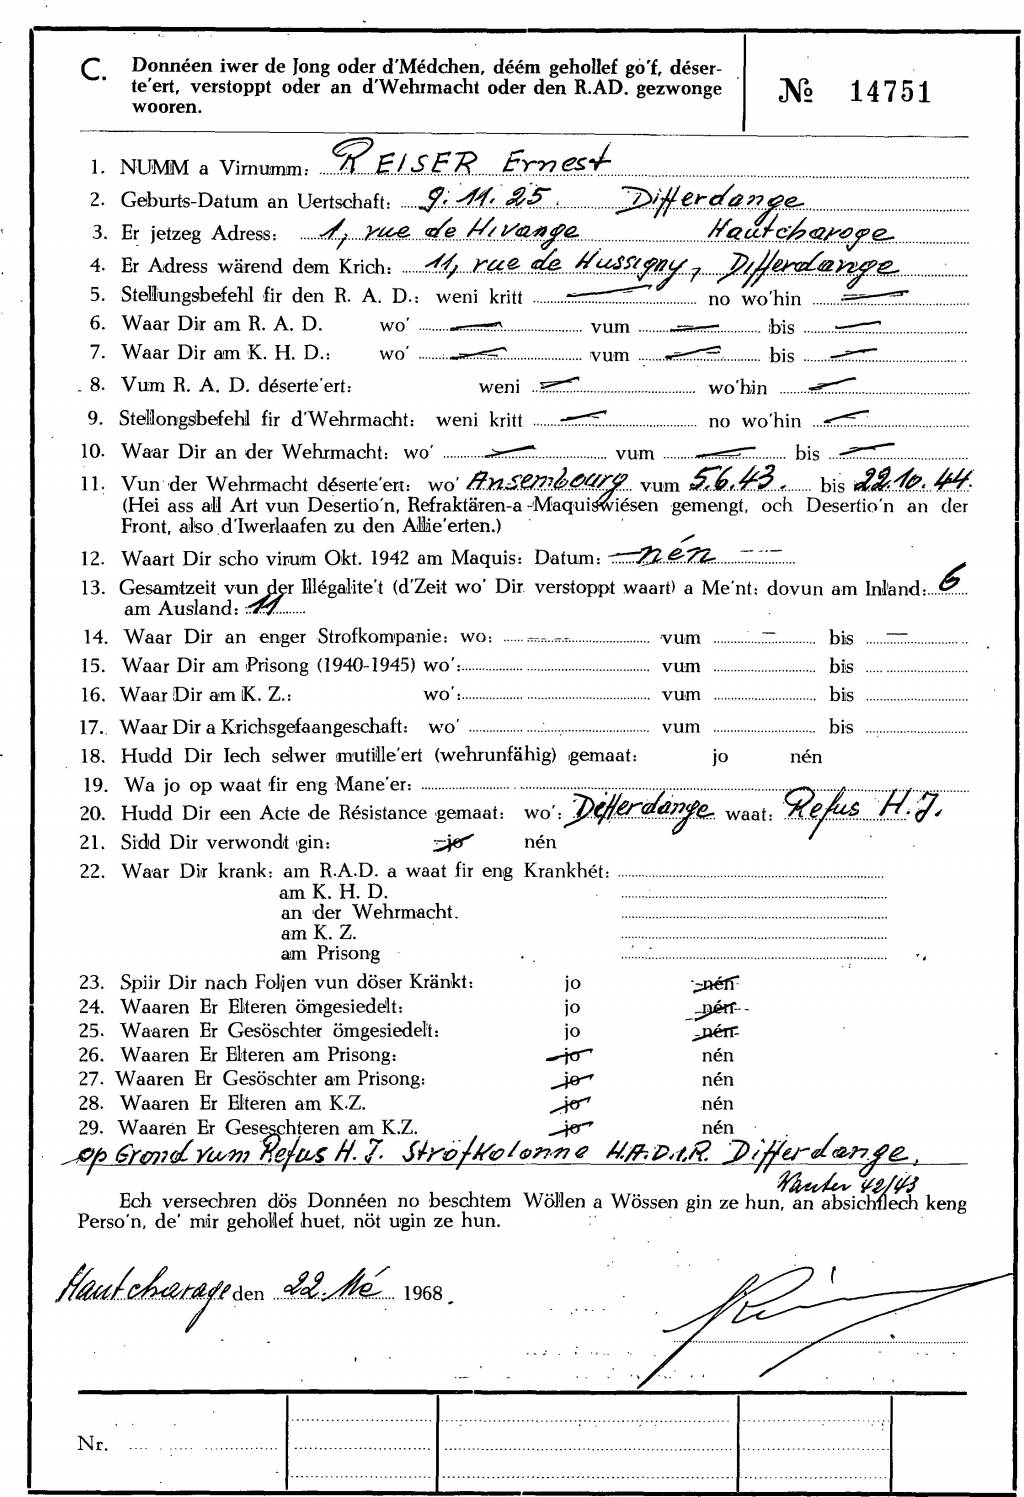 C. Donnéen iwer de Jong oder d'Médchen, déém gehollef go'f, déser-
te'ert, verstoppt oder an d'Wehrmacht oder den R.AD. gezwonge
wooren.
№ 14751
1. NUMM a Virnumm: REISER Ernest
2. Geburts-Datum an Uertschaft: 9. 11. 25. Differdange
3. Er jetzeg Adress: 1, rue de Hivange Hautcharage
4. Er Adress wärend dem Krich: 11, rue de Hussigny, Differdange
5. Stellungsbefehl fir den R. A. D.: weni kritt — no wo'hin —
6. Waar Dir am R. A. D. wo' — vum — bis —
7. Waar Dir am K. H. D.: wo' — vum — bis —
8. Vum R. A. D. déserte'ert: weni — wo'hin —
9. Stellongsbefehl fir d'Wehrmacht: weni kritt — no wo'hin —
10. Waar Dir an der Wehrmacht: wo' — vum — bis —
11. Vun der Wehrmacht déserte'ert: wo' Ansembourg vum 5.6.43. bis 22.10.44.
(Hei ass all Art vun Desertio'n, Refraktären-a -Maquiswiésen gemengt, och Desertio'n an der
Front, also d'Iwerlaafen zu den Allie'erten.)
12. Waart Dir scho virum Okt. 1942 am Maquis: Datum: — nén —
13. Gesamtzeit vun der Illégalite't (d'Zeit wo' Dir verstoppt waart) a Me'nt: dovun am Inland: 6
am Ausland: 11
14. Waar Dir an enger Strofkompanie: wo: — vum — bis —
15. Waar Dir am Prisong (1940-1945) wo': vum bis
16. Waar Dir am K. Z.: wo': vum bis
17. Waar Dir a Krichsgefaangeschaft: wo' vum bis
18. Hudd Dir Iech selwer mutille'ert (wehrunfähig) gemaat: jo nén
19. Wa jo op waat fir eng Mane'er:
20. Hudd Dir een Acte de Résistance gemaat: wo': Differdange waat: Refus H. J.
21. Sidd Dir verwondt gin: jo nén
22. Waar Dir krank: am R.A.D. a waat fir eng Krankhét:
am K. H. D.
an der Wehrmacht.
am K. Z.
am Prisong
23. Spiir Dir nach Foljen vun döser Kränkt: jo nén
24. Waaren Er Elteren ömgesiedelt: jo nén
25. Waaren Er Gesöschter ömgesiedelt: jo nén
26. Waaren Er Elteren am Prisong: jo nén
27. Waaren Er Gesöschter am Prisong: jo nén
28. Waaren Er Elteren am K.Z. jo nén
29. Waaren Er Geseschteren am K.Z. jo nén
op Grond vum Refus H. J. Strofkolonne H.A.D.I.R. Differdange,
Wanter 42/43
Ech versechren dös Donnéen no beschtem Wöllen a Wössen gin ze hun, an absichtlech keng
Perso'n, de' mir gehollef huet, nöt ugin ze hun.
Hautcharage den 22. Mé 1968.
Nr.